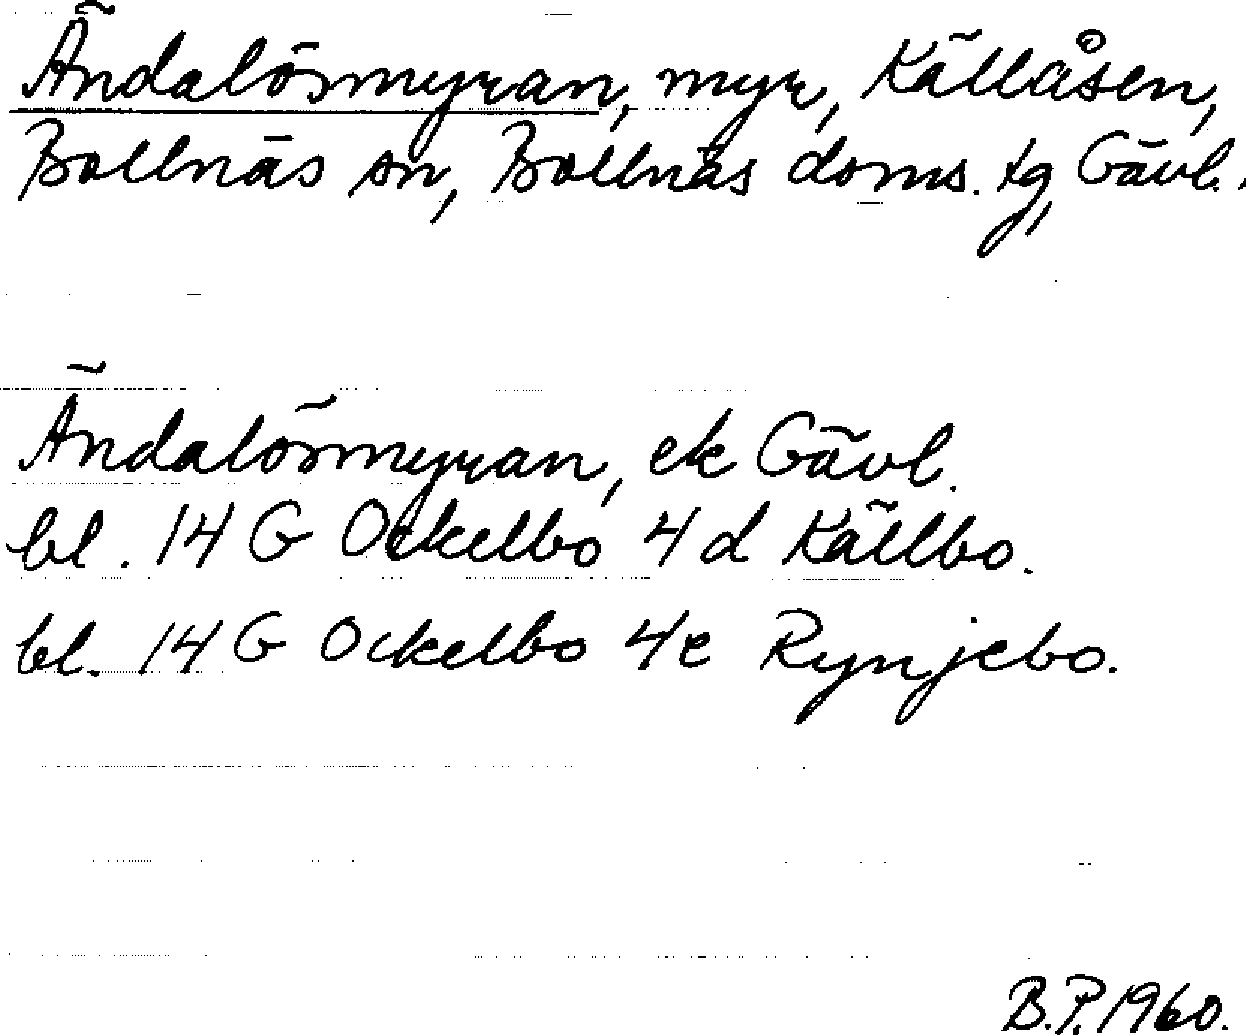 Ändalösmyran, myr, Källåsen,
Bollnäs sn, Bollnäs doms. tg, Gävl.
Ändalösmyran, ek Gävl.
bl. 14 G Ockelbo 4 d Källbo.
bl. 14 G Ockelbo 4e Rynjebo.
B.P. 1960.